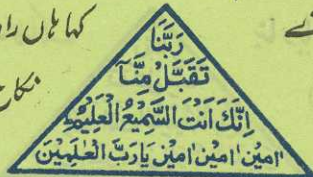 کہا ہاں را
نکاح
رَبَّنَا
تَقَبَّلْ مِنَّآ
اِنَّکَ اَنْتَ السَّمِیْعُ الْعَلِیْمُ
اٰمِیْن اٰمِیْن اٰمِیْن یَارَبَّ الْعٰلَمِیْن